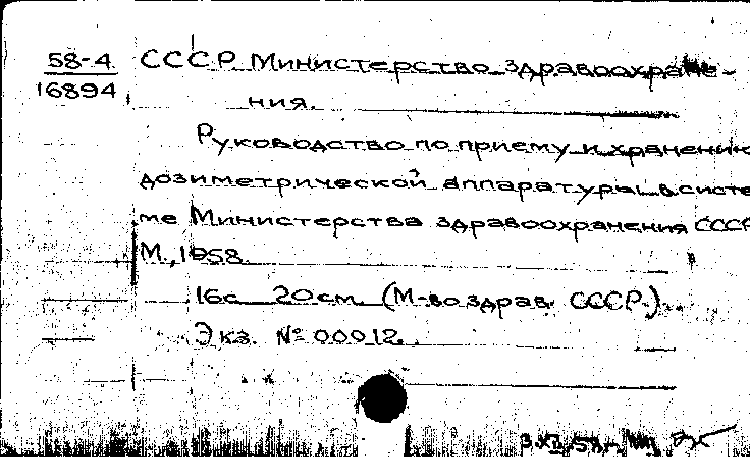 58-4
16894
СССР Министерство здравоохране-
ния.
Руководство по приему и хранению
дозиметрической аппаратуры в систе
ме Министерства здравоохранения СССР
М., 1958.
16с. 20см. (М-во здрав. СССР.).
Экз. № 00012.
3.XII.58г.